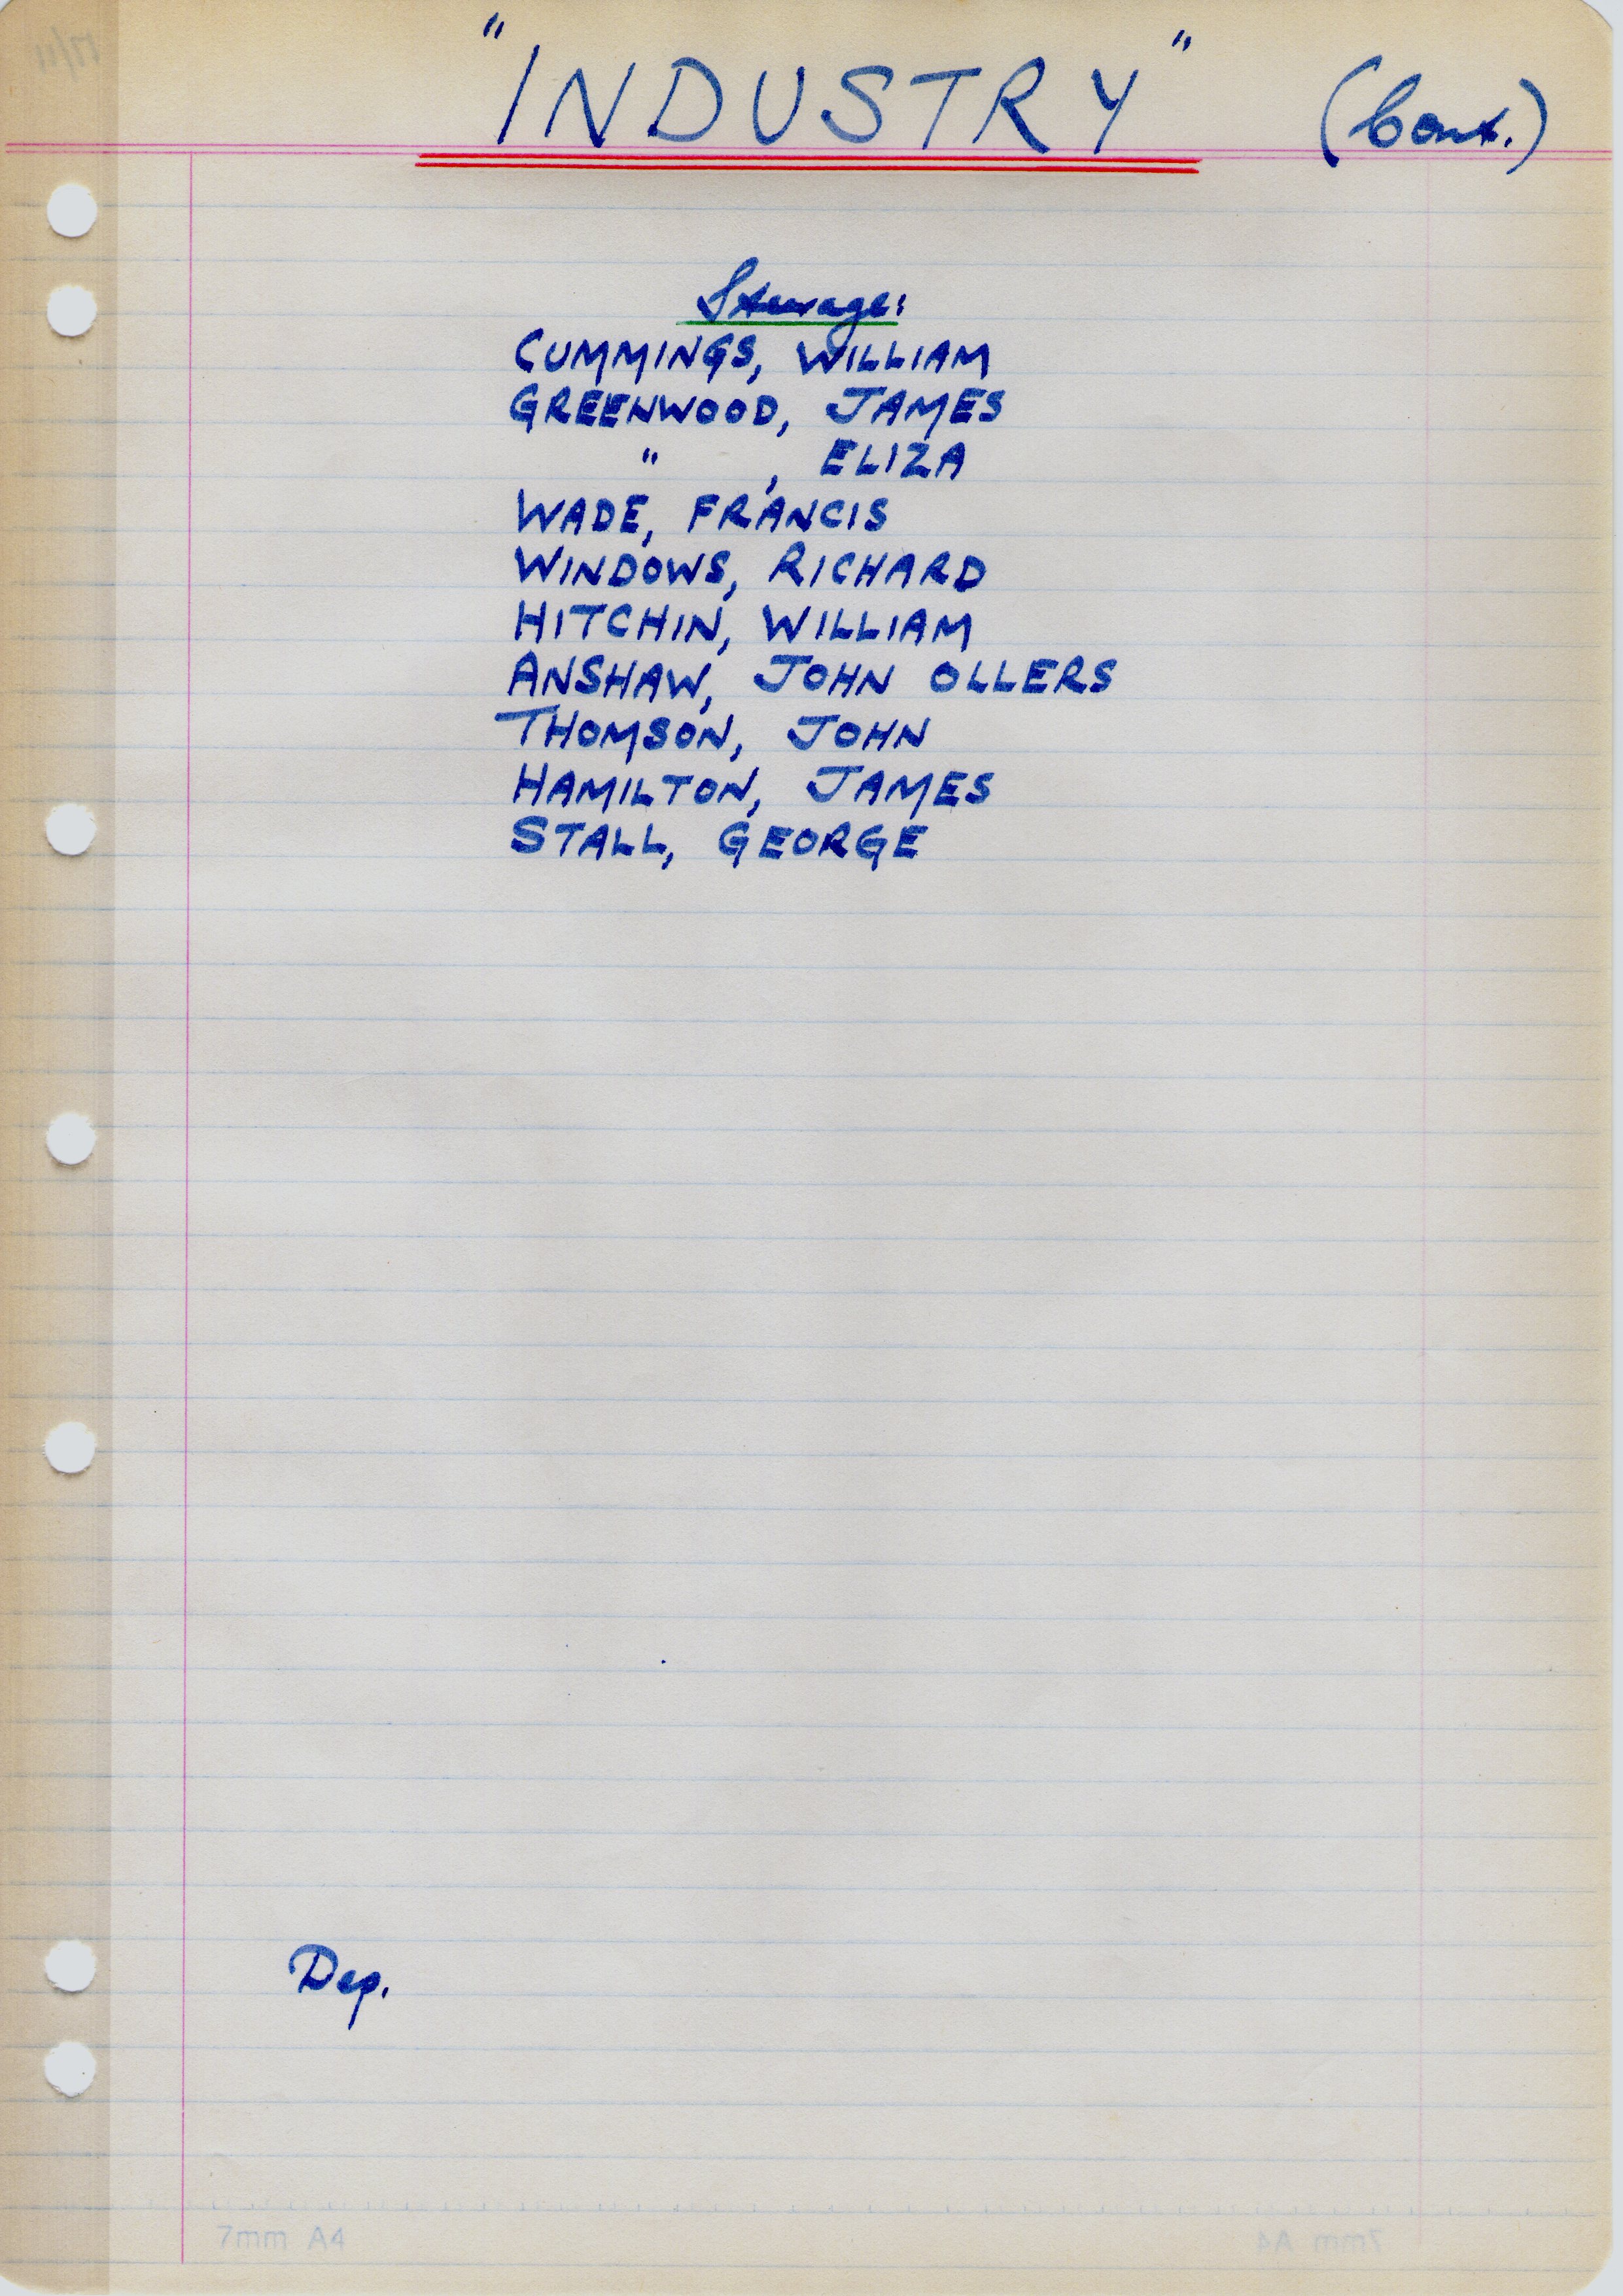 "INDUSTRY" (Cont.)
Steerage:
CUMMINGS, WILLIAM
GREENWOOD, JAMES
" , ELIZA
WADE, FRANCIS
WINDOWS, RICHARD
HITCHIN, WILLIAM
ANSHAW, JOHN OLLERS
THOMSON, JOHN
HAMILTON, JAMES
STALL, GEORGE
Dep.
7mm A4
7mm A4